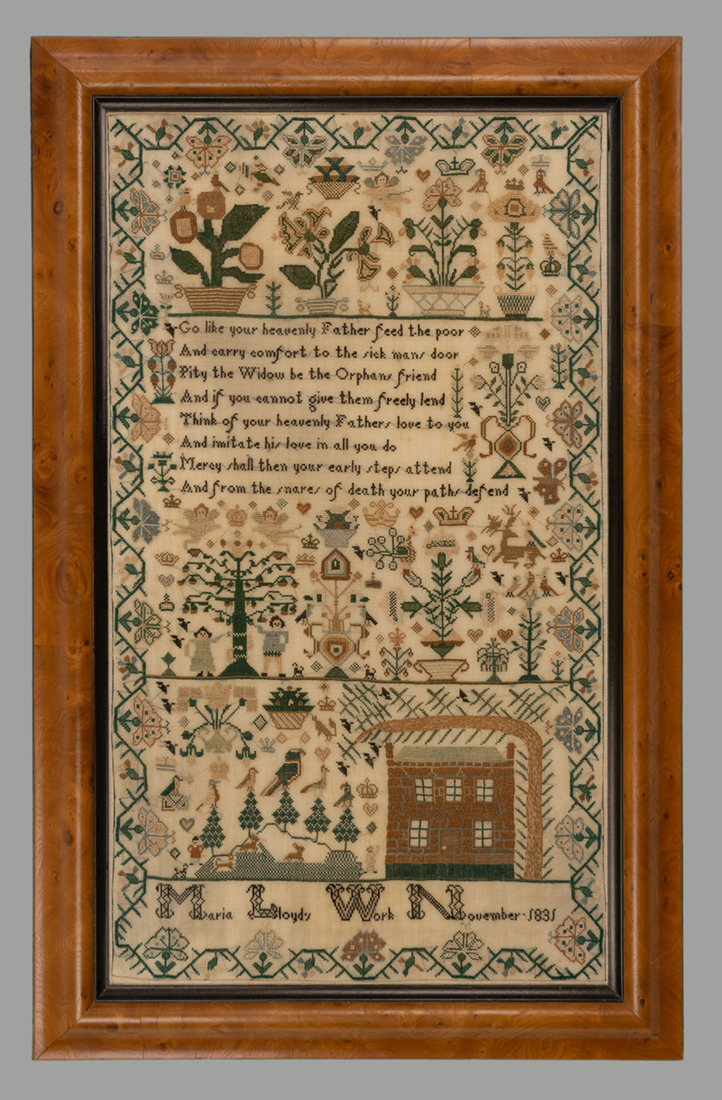 Go like your heavenly Father feed the poor
And carry comfort to the sick mans door
Pity the Widow be the Orphans friend
And if you cannot give them freely lend
Think of your heavenly Fathers love to you
And imitate his love in all you do
Mercy shall then your early steps attend
And from the snares of death your paths defend
Maria Lloyds Work November 1831